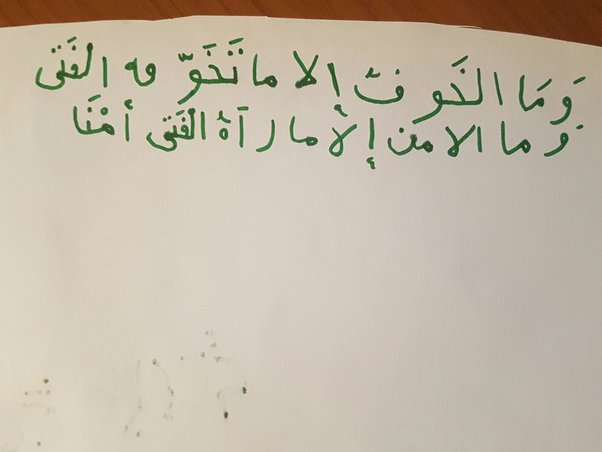 وَمَا الخَوفُ إلا ما تَخَوَّفه الفَتَى
وما الامن إلا ما رآهُ الفَتَى أمْنَا